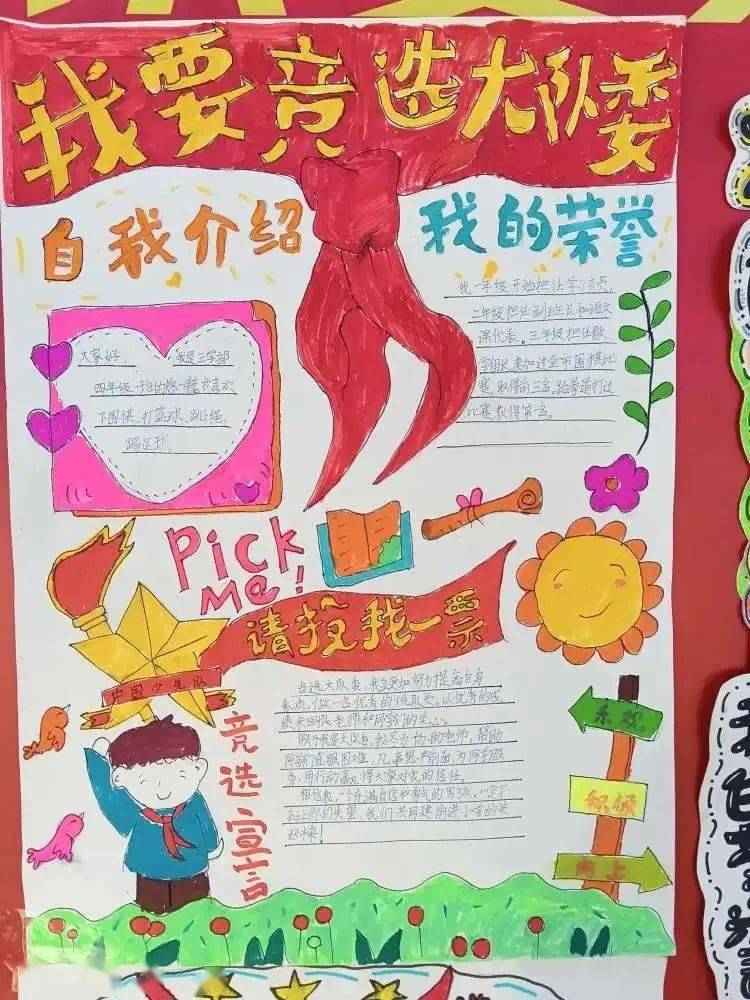 我要竞选大队委
自我介绍
我的荣誉
大家好 我是三学部
四年级一班的 我喜欢
下围棋、打篮球、跳绳,
踢足球。
我一年级开始担任学习委员,
二年级担任副班长和语文
课代表。三年级担任数
学组长,参加过全市围棋比
赛,取得前三名,跆拳道打过
比赛获得第一名。
Pick
Me!
请投我一票
中国少先队
竞选宣言
当选大队委,我会更加努力提高自身
素质,做一名优秀的少先队员,以优秀的成
绩来回报老师和同学们的关心。
假如我是大队委,我尽力协助老师,帮助
同学们克服困难,凡事想在前面,为同学服
务,用行动赢得大家对我的信任。
相信我,一个充满自信和勇气的男孩,一定不
会让你们失望,我们共同建 前进小学的美
好明天!
乐观
积极
向上